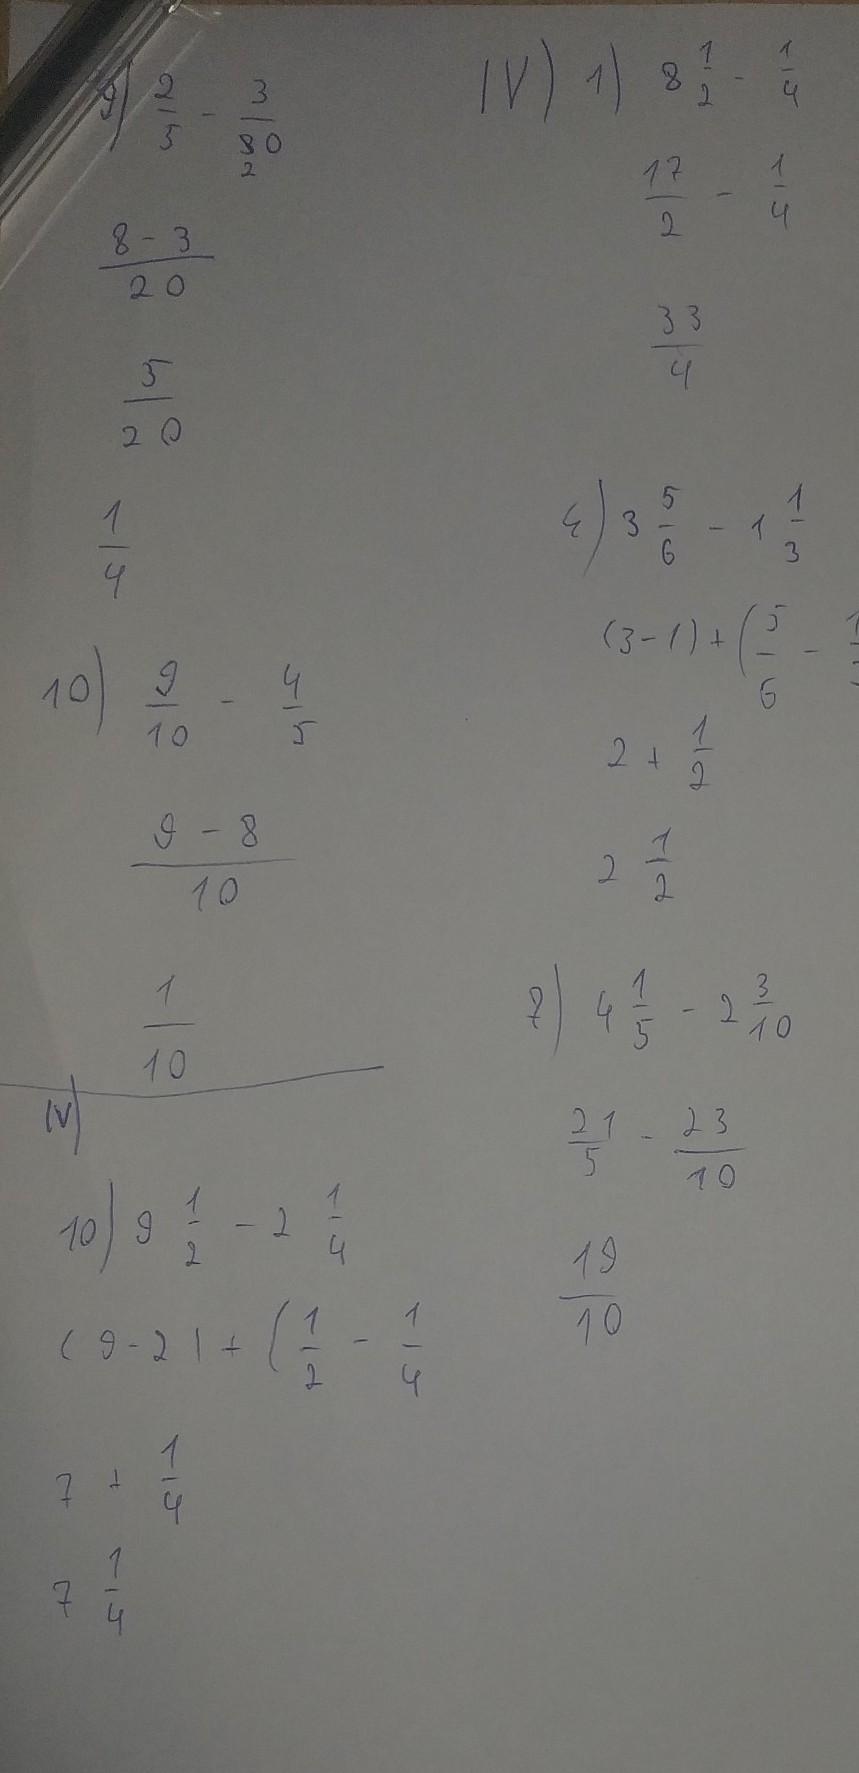 9) 2/5 - 3/20
8-3/20
5/20
1/4
10) 9/10 - 4/5
9-8/10
1/10
IV)
10) 9 1/2 - 2 1/4
(9-2) + (1/2 - 1/4
7 + 1/4
7 1/4
IV) 1) 8 1/2 - 1/4
17/2 - 1/4
33/4
4) 3 5/6 - 1 1/3
(3-1) + (5/6 -
2 + 1/2
2 1/2
7) 4 1/5 - 2 3/10
21/5 - 23/10
19/10